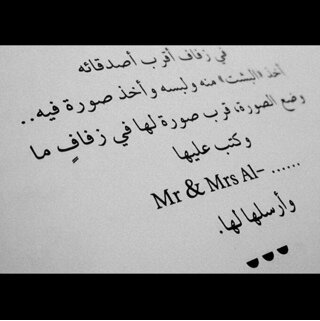 في زفاف أقرب أصدقائه
أخذ «البشت» منه ولبسه وأخذ صورة فيه..
وضع الصورة، قرب صورة لها في زفافٍ ما
وكتب عليها
Mr & Mrs Al- ......
وأرسلها لها.